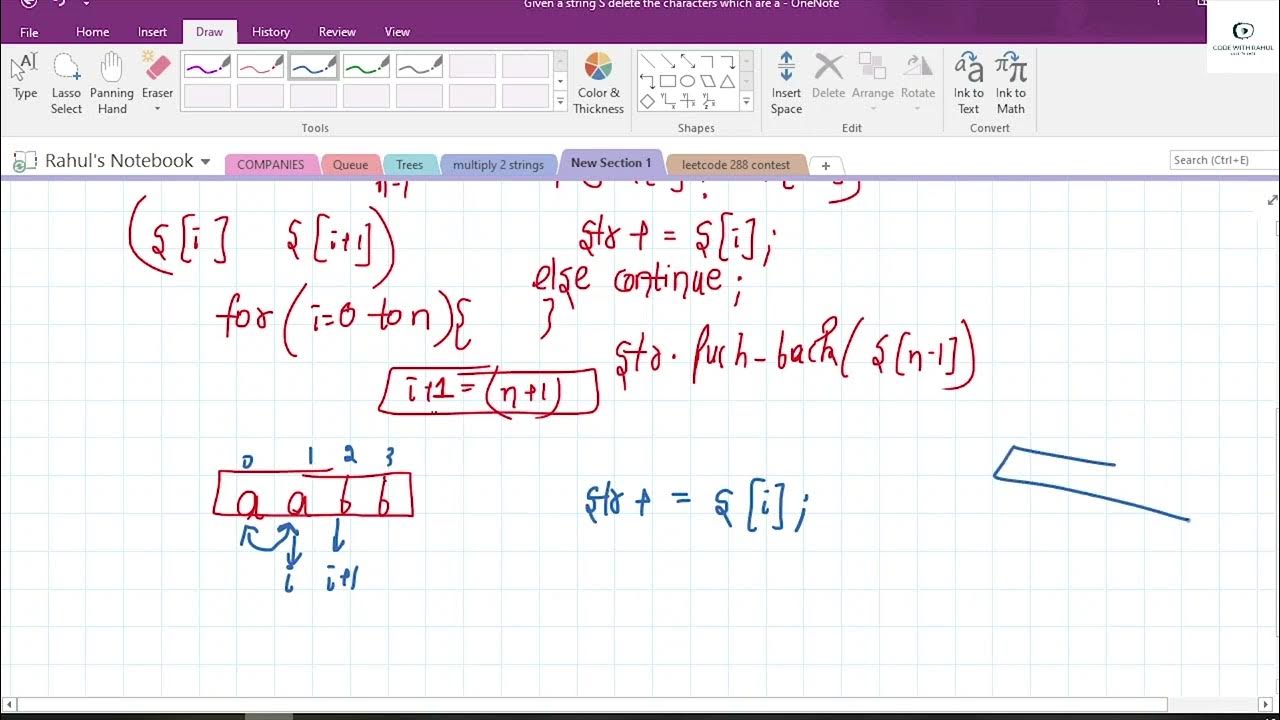 Given a string S delete the characters which are a - OneNote
File Home Insert Draw History Review View
CODE WITH RAHUL
Type Lasso Select Panning Hand Eraser Color & Thickness Insert Space Delete Arrange Rotate Ink to Text Ink to Math
Tools Shapes Edit Convert
Rahul's Notebook COMPANIES Queue Trees multiply 2 strings New Section 1 leetcode 288 contest + Search (Ctrl+E)
n-1
(S[i] S[i+1]) str += S[i];
else continue;
for(i=0 to n){ }
str.Push-back(S[n-1])
i+1=(n+1)
0 1 2 3
a a b b str += S[i];
i i+1